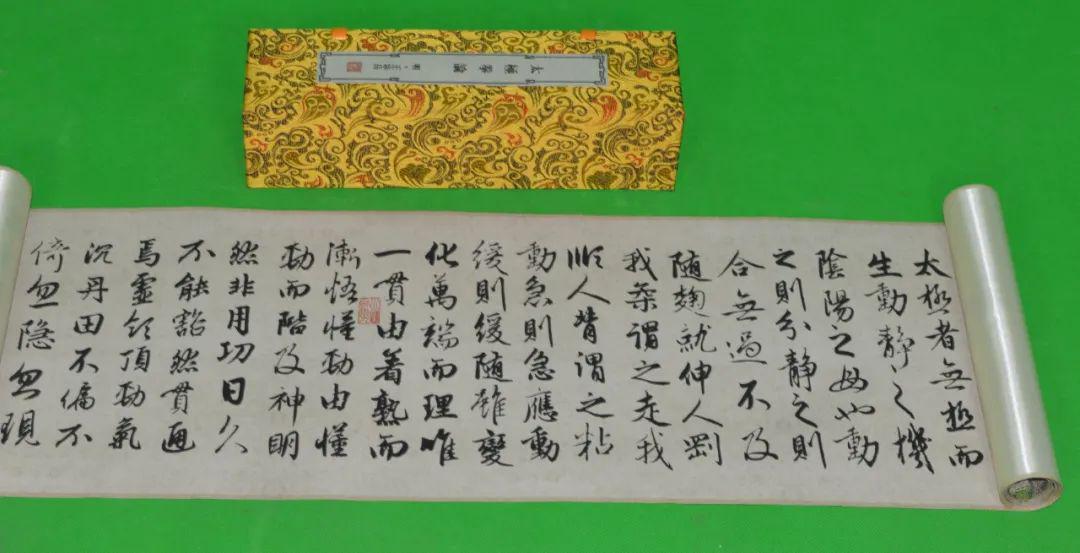 太極拳論
明·王宗岳
太極者無極而
生動靜之機
陰陽之母也動
之則分靜之則
合無過不及
随麯就伸人剛
我柔謂之走我
順人背謂之粘
動急則急應動
緩則緩随雖變
化萬端而理唯
一貫由着熟而
漸悟懂勁由懂
勁而階及神明
然非用功日久
不能豁然貫通
焉虛領頂勁氣
沉丹田不偏不
倚忽隐忽現